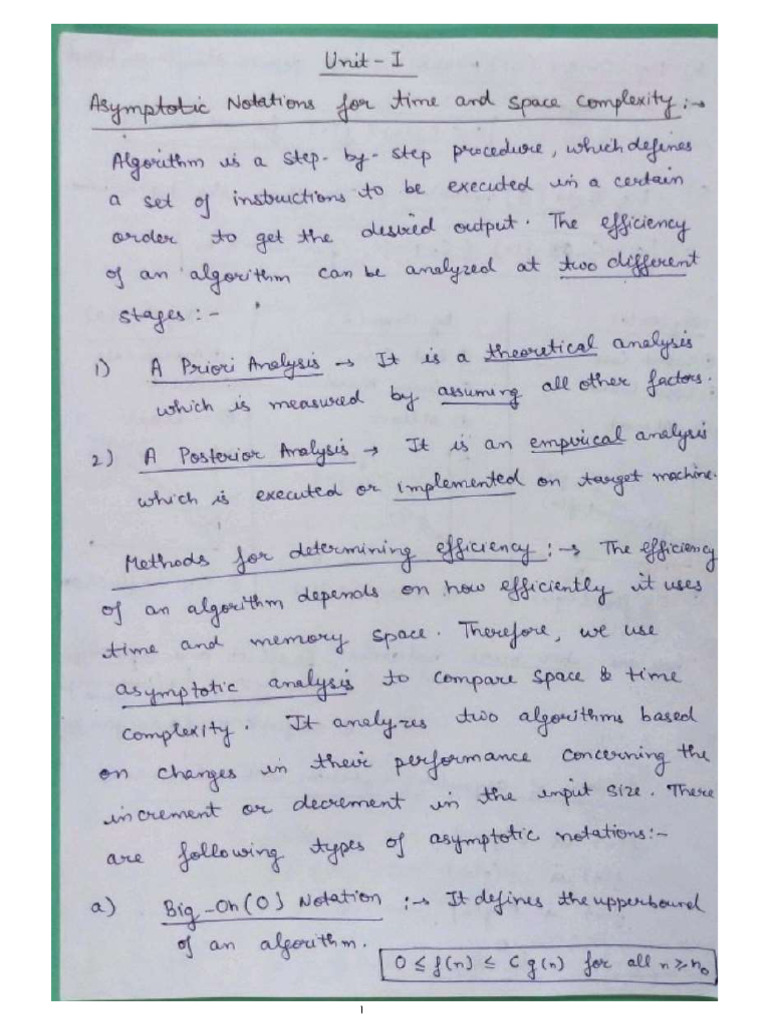 Unit - I
Asymptotic Notations for time and space complexity :→
Algorithm is a step-by-step procedure, which defines
a set of instructions to be executed in a certain
order to get the desired output. The efficiency
of an algorithm can be analyzed at two different
stages :-
1) A Priori Analysis → It is a theoretical analysis
which is measured by assuming all other factors.
2) A Posterior Analysis → It is an empirical analysis
which is executed or implemented on target machine.
Methods for determining efficiency :→ The efficiency
of an algorithm depends on how efficiently it uses
time and memory space. Therefore, we use
asymptotic analysis to compare space & time
complexity. It analyzes two algorithms based
on changes in their performance concerning the
increment or decrement in the input size. There
are following types of asymptotic notations:-
a) Big-Oh(O) Notation :→ It defines the upperbound
of an algorithm.
0 ≤ f(n) ≤ C g(n) for all n ≥ n₀
1